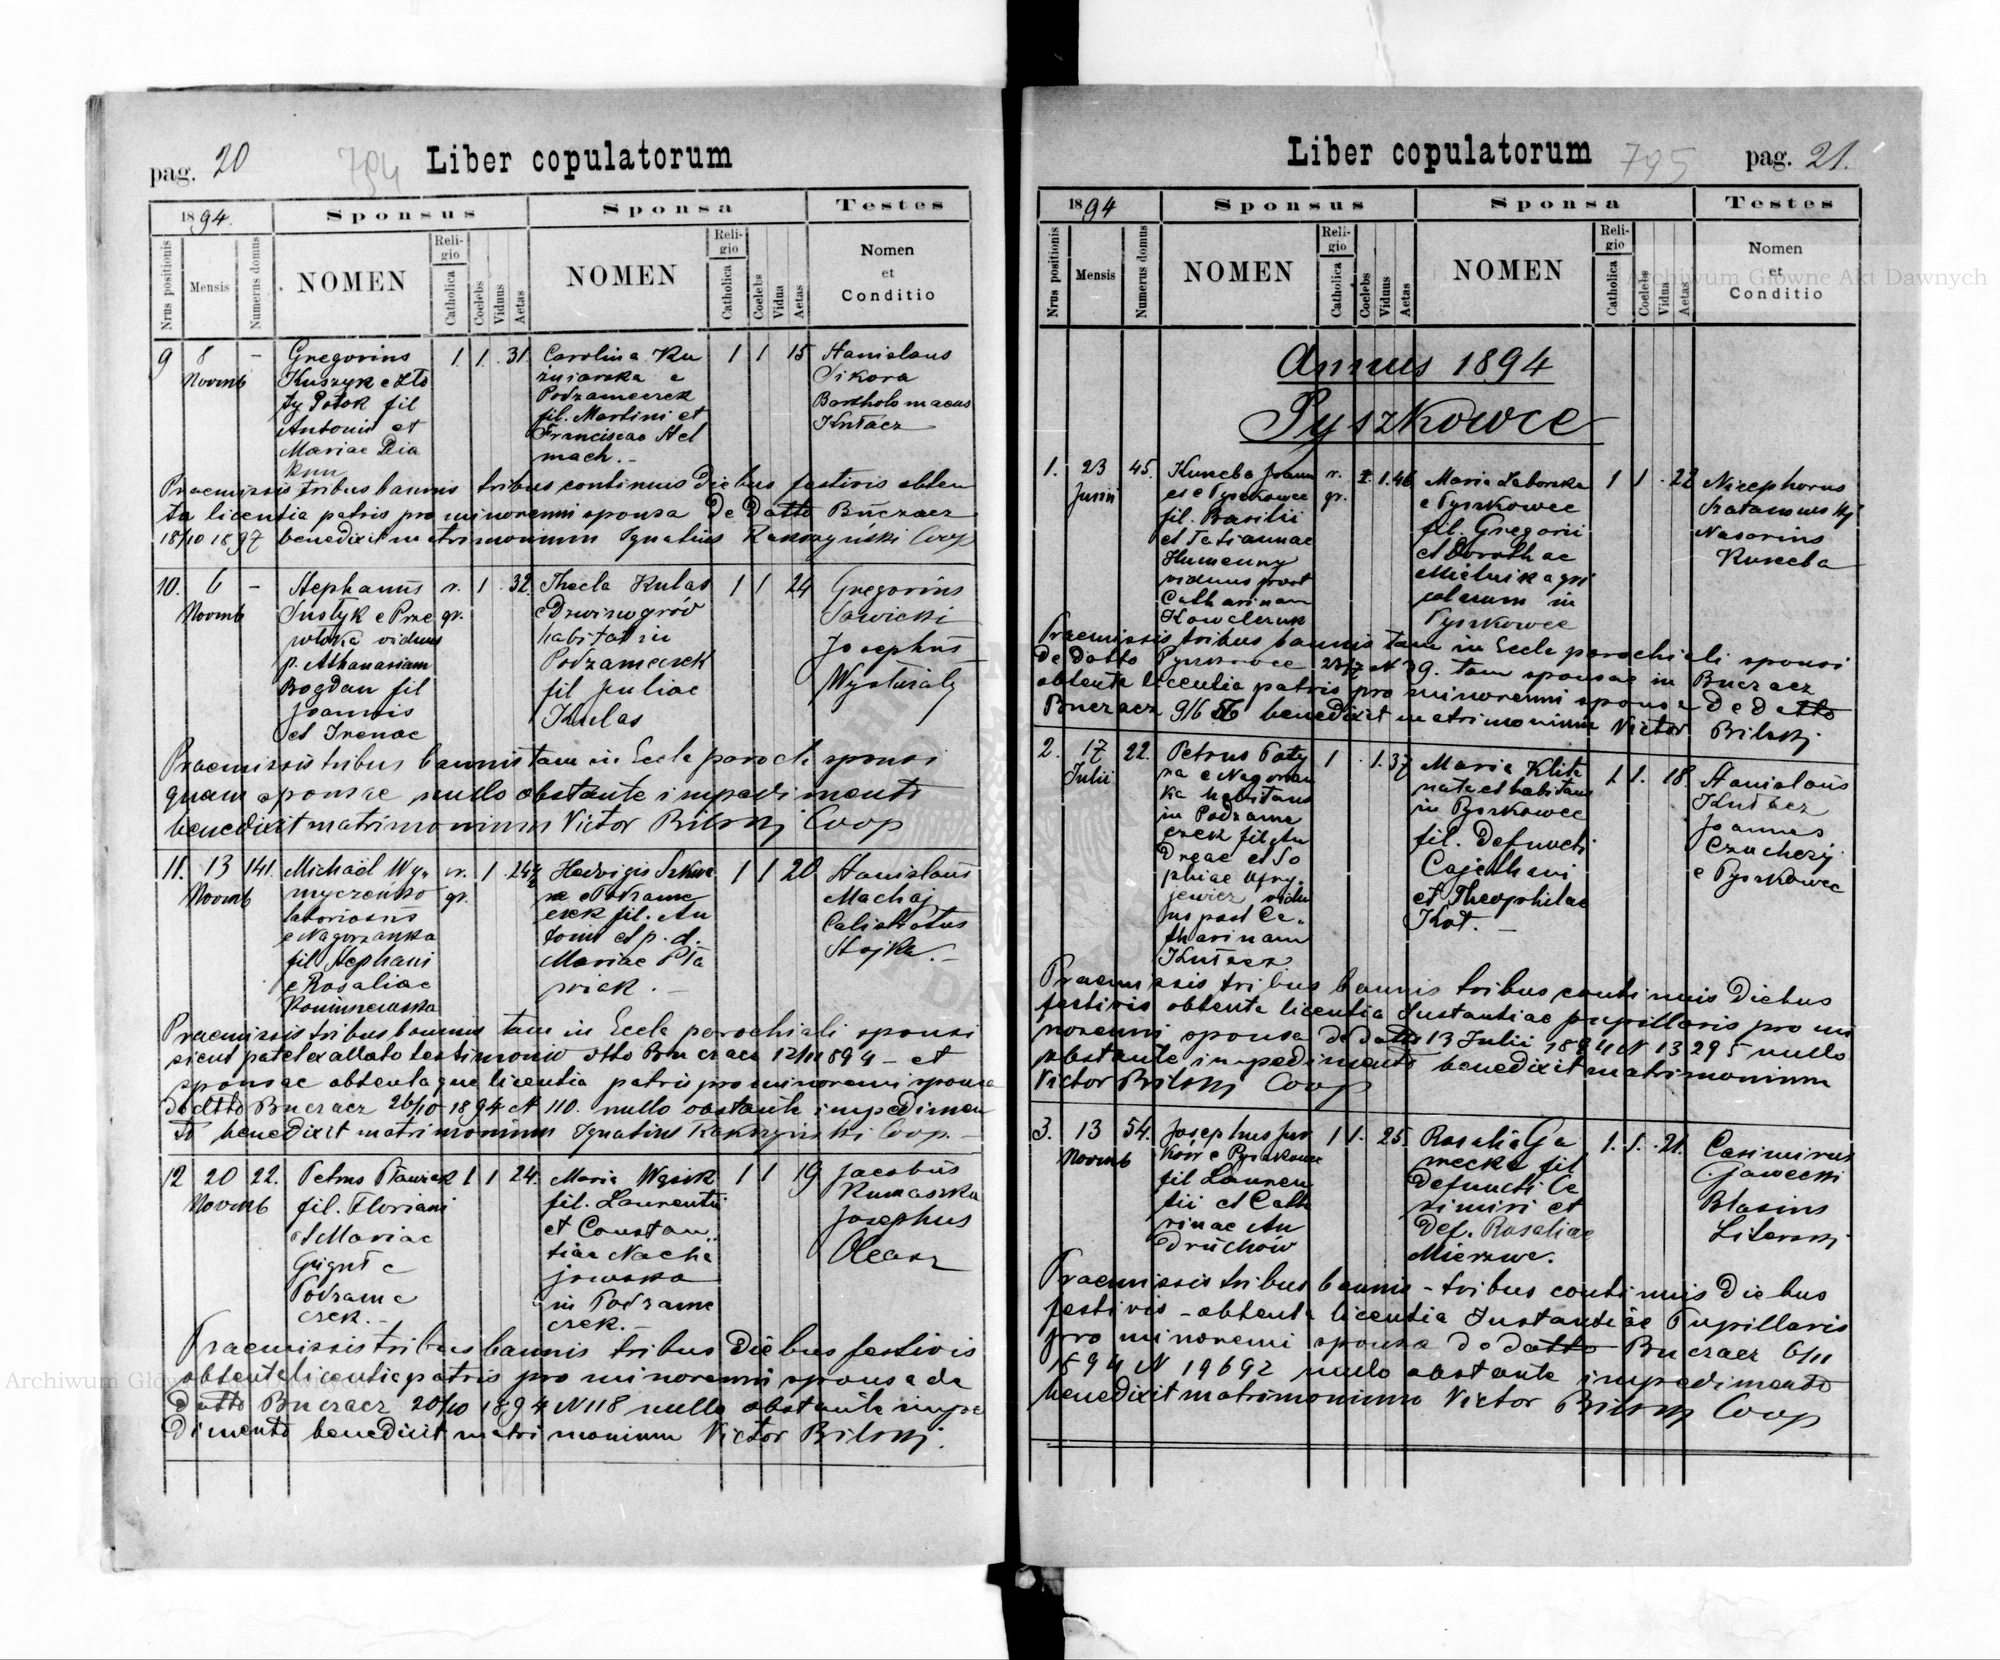 pag. 20
794
Liber copulatorum
1894.
Sponsus
Sponsa
Testes
Nrus positionis
Mensis
Numerus domus
NOMEN
Religio
Catholica
Coelebs
Viduus
Aetas
NOMEN
Religio
Catholica
Coelebs
Vidua
Aetas
Nomen
et
Conditio
9 8 Novemb –
Gregorius
Kuszyk e Zło
ty Potok fil
Antonii et
Mariae Dia
kun
1 1 31
Carolina Ku
źniarska e
Podzameczek
fil. Martini et
Franciscae Hel
mach.–
1 1 15
Stanislaus
Sikora
Bartholomaeus
Kułacz
Praemissis tribus bannis tribus continuis diebus festivis obten
ta licentia patris pro minorenni sponsa de datto Buczacz
18/10 1897 benedixit matrimonium Ignatius Coop
10. 6 Novemb –
Stephanus
e Prze
włoka viduus
p. Athanasiam
Bogdan fil
Joannis
et Irenae
r. gr. 1 32
Thecla Kulas
e Dzwinogród
habitat in
Podzameczek
fil Juliae
Kulas
1 1 24
Gregorius
Sawicki
Josephus
Praemissis tribus bannis tam in Eccle paroch sponsi
quam sponsae nullo obstante impedimento
benedixit matrimonium Victor Bilski Coop
11. 13 Novemb 141.
Michaël Wy
myczeńko
e Nagorzanka
fil Stephani
e Rosaliae
r. gr. 1 24
Hedvigis
e Podzame
czek fil. An
tonii et p. d.
Mariae Pta
wiak.–
1 1 20
Stanislaus
Machaj
Calistratus
Stojka.–
Praemissis tribus bannis tam in Eccle parochiali sponsi
sicut patet ex allato testimonio dtto Buczacz 12/11 894 – et
sponsae obtentaque licentia patris pro minorenni sponsa
de dtto Buczacz 26/10 1894 N 110. nullo obstante impedimen
to benedixit matrimonium Ignatius Coop.–
12 20 Novemb 22.
Petrus Ptawiak
fil. Floriani
et Mariae
e
Podzame
czek.–
1 1 24.
Maria Wąsik
fil. Laurentii
et Constan
tiae Nacha
jowska
in Podzame
czek.–
1 1 19
Jacobus
Josephus
Olearz
Praemissis tribus bannis tribus diebus festivis
obtenta licentia patris pro minorenni sponsa de
datto Buczacz 20/10 1894 N 118 nullo obstante impe
dimento benedixit matrimonium Victor Bilski.
Liber copulatorum
795
pag. 21.
1894
Sponsus
Sponsa
Testes
Nrus positionis
Mensis
Numerus domus
NOMEN
Religio
Catholica
Coelebs
Viduus
Aetas
NOMEN
Religio
Catholica
Coelebs
Vidua
Aetas
Nomen
et
Conditio
Annus 1894
Pyszkowce
1. 23 Junii 45.
Kuneba Joann
es e Pyszkowce
fil. Basilii
et Tetiannae
Humenny
viduus post
Catharinam
Kowalczuk
r. gr. 1. 46
Maria
e Pyszkowce
fil. Gregorii
et Dorothae
Mielnik agri
colarum in
Pyszkowce
1 1 22
Nicephorus
Nasorius
Kuneba
Praemissis tribus bannis tam in Eccle parochiali sponsi
de datto Pyszkowce N 39. tam sponsae in Buczacz
obtenta licentia patris pro minorenni sponsa de datto
Buczacz 9/6 benedixit matrimonium Victor Bilski
2. 17 Julii 22.
Petrus Paty
ra e Nagorzan
ka habitans
in Podzame
czek fil An
dreae et So
phiae
vidu
us post Ca
tharinam
Kułacz
1 1. 37
Maria Klita
nata et habitans
in Pyszkowce
fil. Defuncti
Cajethani
et Theophilae
Kot.–
1 1. 18.
Stanislaus
Kułacz
Joannes
e Pyszkowce
Praemissis tribus bannis tribus continuis diebus
festivis obtenta licentia Instantiae pupillaris pro mi
norenni sponsa de datto 13 Julii 1894 N 13295 nullo
obstante impedimento benedixit matrimonium
Victor Bilski Coop
3. 13 Novemb 54.
Josephus Jur
ków e Pyszkowce
fil Lauren
tii et Catha
rinae An
druchów
1 1. 25.
Rosalia Ga
wecka fil
defuncti Ca
simiri et
Def. Rosaliae
Mierzwa.
1. 1. 21.
Casimirus
Gawecki
Blasius
Literski
Praemissis tribus bannis – tribus continuis diebus
festivis – obtenta licentia Instantiae Pupillaris
pro minorenni sponsa de datto Buczacz 6/11
1894 N 19692 nullo obstante impedimento
benedixit matrimonium Victor Bilski Coop
Archiwum Główne Akt Dawnych
Archiwum Główne Akt Dawnych